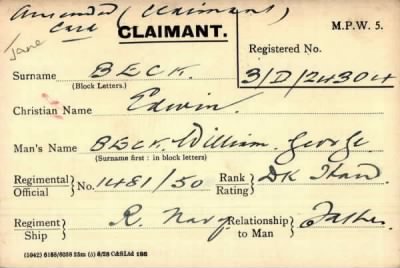 Amended (Claimant)
Card CLAIMANT. M.P.W. 5.
Jane
Registered No.
Surname BECK. 3/D/24304
(Block Letters.)
Christian Name Edwin.
Man's Name BECK. William George.
(Surname first : in block letters)
Regimental Official } No. 1481/50 Rank Rating } DK Hand
Regiment Ship } R. Navy Relationship to Man } Father
(5942) 6188/6058 25m (5) 8/28 C&SLtd 186